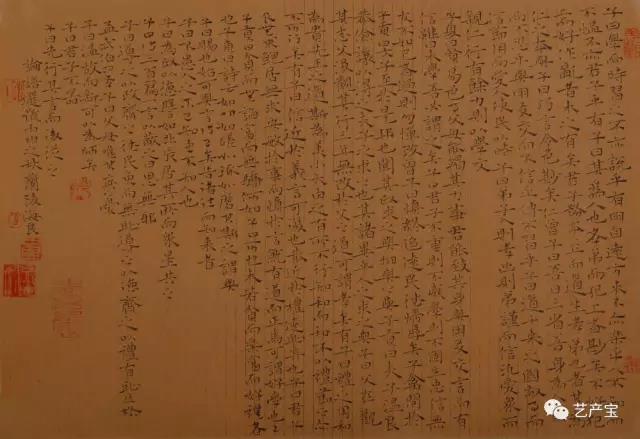 子曰學而時習之不亦說乎有朋自遠方來不亦樂乎人不知而
不慍不亦君子乎有子曰其為人也孝弟而好犯上者鮮矣不好犯上
而好作亂者未之有也君子務本本立而道生孝弟也者其為
仁之本與子曰巧言令色鮮矣仁曾子曰吾日三省吾身為人謀
而不忠乎與朋友交而不信乎傳不習乎子曰道千乘之國敬事而
信節用而愛人使民以時子曰弟子入則孝出則弟謹而信汎愛衆而
親仁行有餘力則以學文
子夏曰賢賢易色事父母能竭其力事君能致其身與朋友交言而有
信雖曰未學吾必謂之學矣子曰君子不重則不威學則不固主忠信無
友不如己者過則勿憚改曾子曰慎終追遠民德歸厚矣子禽問於
子貢曰夫子至於是邦也必聞其政求之與抑與之與子貢曰夫子溫良
恭儉讓以得之夫子之求之也其諸異乎人之求之與子曰父在觀
其志父沒觀其行三年無改於父之道可謂孝矣有子曰禮之用和
為貴先王之道斯為美小大由之有所不行知和而和不以禮節之亦
不可行也有子曰信近於義言可復也恭近於禮遠恥辱也子曰君子
食無求飽居無求安敏於事而慎於言就有道而正焉可謂好學也已
子貢曰貧而無諂富而無驕何如子曰可也未若貧而樂富而好禮者
也子貢曰詩云如切如磋如琢如磨其斯之謂與
子曰賜也始可與言詩已矣告諸往而知來者
子曰不患人之不己知患不知人也
子曰為政以德譬如北辰居其所而衆星共之
子曰詩三百一言以蔽之曰思無邪
子曰道之以政齊之以刑民免而無恥道之以德齊之以禮有恥且格
孟武伯問孝子曰父母唯其疾之憂
子曰溫故而知新可以為師矣
子曰君子不器
子曰先行其言而後從之
論語
艺产宝